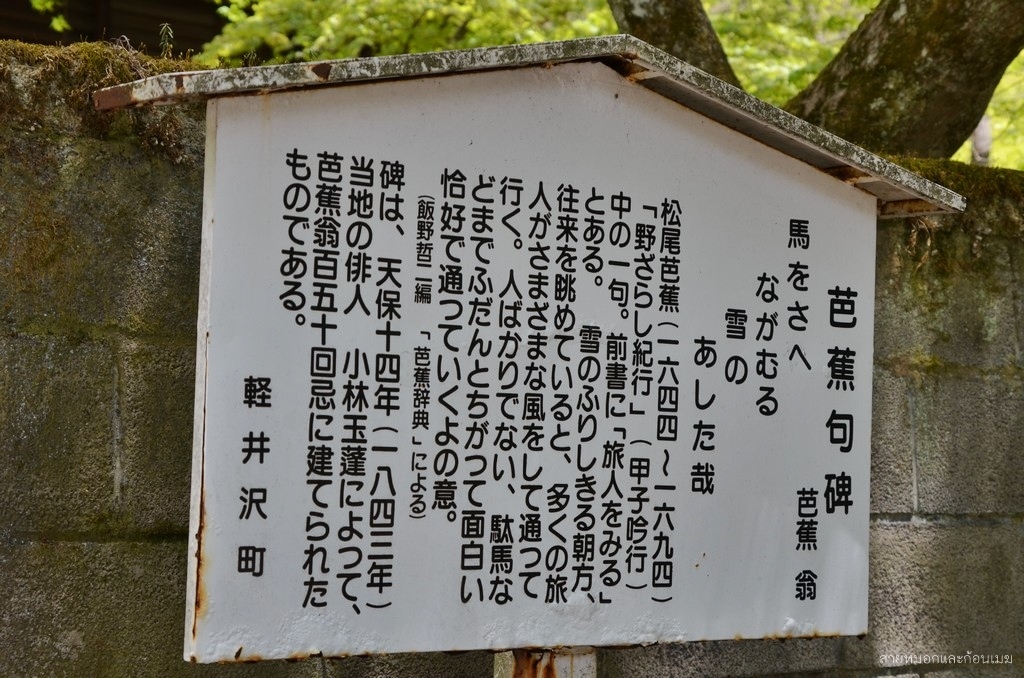 芭蕉句碑
芭蕉翁
馬をさへ
ながむる
雪の
あした哉
松尾芭蕉(一六四四～一六九四)
「野ざらし紀行」(甲子吟行)
中の一句。前書に「旅人をみる」
とある。 雪のふりしきる朝方、
往来を眺めていると、多くの旅
人がさまざまな風をして通って
行く。人ばかりでない、駄馬な
どまでふだんとちがって面白い
恰好で通っていくよの意。
(飯野哲二編 「芭蕉辞典」による)
碑は、天保十四年(一八四三年)
当地の俳人 小林玉蓬によって、
芭蕉翁百五十回忌に建てられた
ものである。
軽井沢町
สายหมอกและก้อนเมฆ